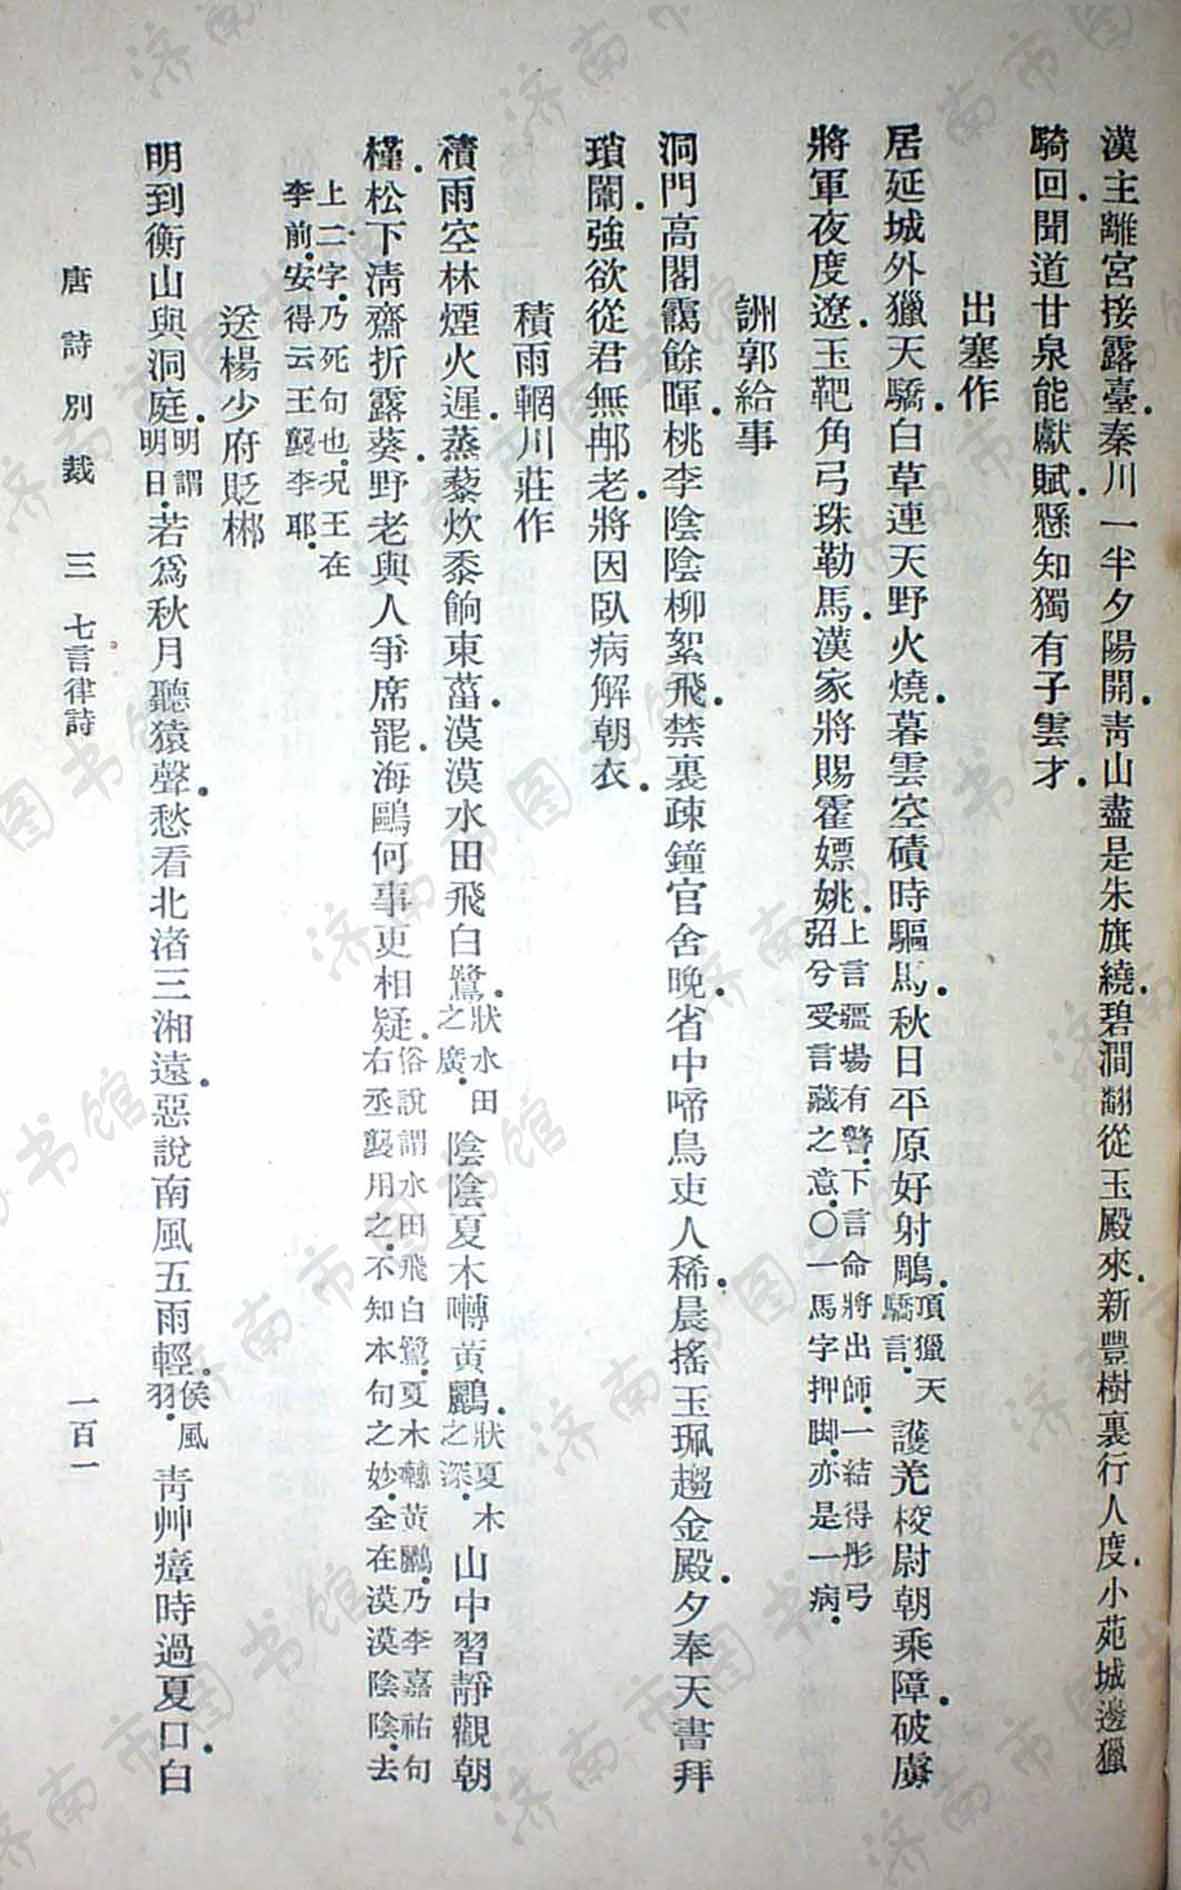 漢主離宮接露臺。秦川一半夕陽開。青山盡是朱旗繞。碧澗翻從玉殿來。新豐樹裏行人度。小苑城邊獵
騎回。聞道甘泉能獻賦。懸知獨有子雲才。
出塞作
居延城外獵天驕。白草連天野火燒。暮雲空磧時驅馬。秋日平原好射鵰。頂獵天驕言。護羌校尉朝乘障。破虜
將軍夜度遼。玉靶角弓珠勒馬。漢家將賜霍嫖姚。上言疆場有警。下言命將出師。一結得彤弓弨兮受言藏之意。〇一馬字押脚。亦是一病。
詶郭給事
洞門高閣靄餘暉。桃李陰陰柳絮飛。禁裏疎鐘官舍晚。省中啼鳥吏人稀。晨搖玉珮趨金殿。夕奉天書拜
瑣闈。強欲從君無那老。將因臥病解朝衣。
積雨輞川莊作
積雨空林煙火遲。蒸藜炊黍餉東菑。漠漠水田飛白鷺。狀水田之廣。陰陰夏木囀黃鸝。狀夏木之深。山中習靜觀朝
槿。松下清齋折露葵。野老與人爭席罷。海鷗何事更相疑。俗說謂水田飛白鷺。夏木囀黃鸝。乃李嘉祐句右丞襲用之。不知本句之妙。全在漠漠陰陰。去
上二字。乃死句也。況王在李前。安得云王襲李耶。
送楊少府貶郴
明到衡山與洞庭。明謂明日。若為秋月聽猿聲。愁看北渚三湘遠。惡說南風五雨輕。侯風羽。青艸瘴時過夏口。白
唐詩別裁 三 七言律詩 一百一
济南市图书馆